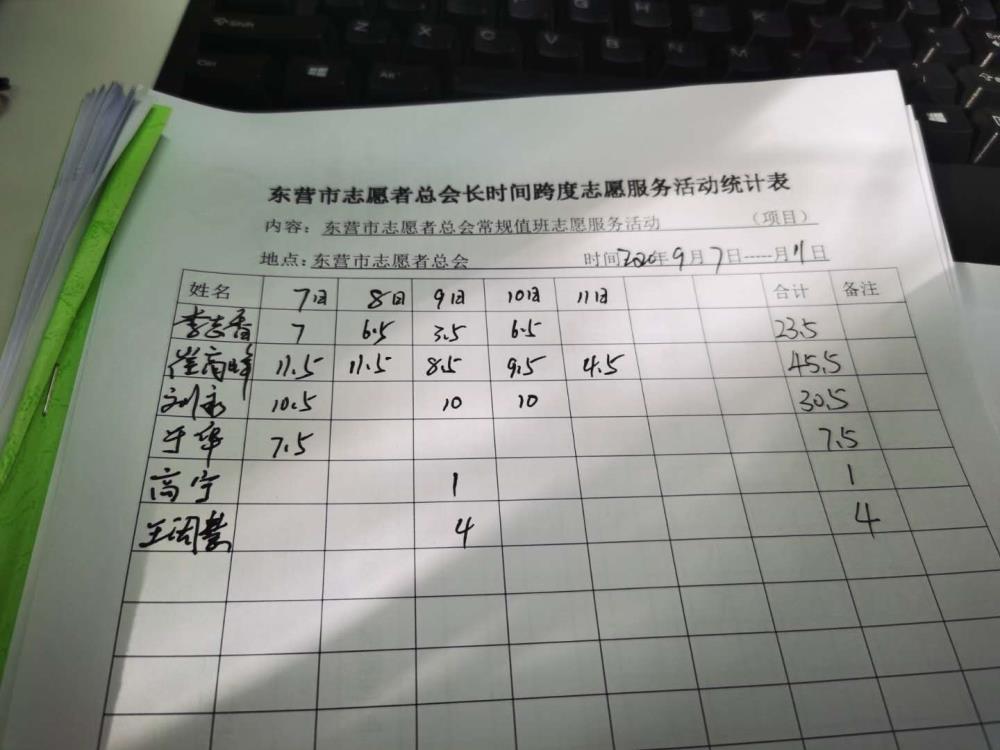 东营市志愿者总会长时间跨度志愿服务活动统计表
内容：东营市志愿者总会常规值班志愿服务活动 （项目）
地点：东营市志愿者总会 时间2020年9月7日-----月11日
姓名 7日 8日 9日 10日 11日 合计 备注
李志香 7 6.5 3.5 6.5 23.5
崔高峰 11.5 11.5 8.5 9.5 4.5 45.5
刘永 10.5 10 10 30.5
于华 7.5 7.5
高宁 1 1
王闰慧 4 4
Shift
Ctrl
Alt
Z X C V B N M